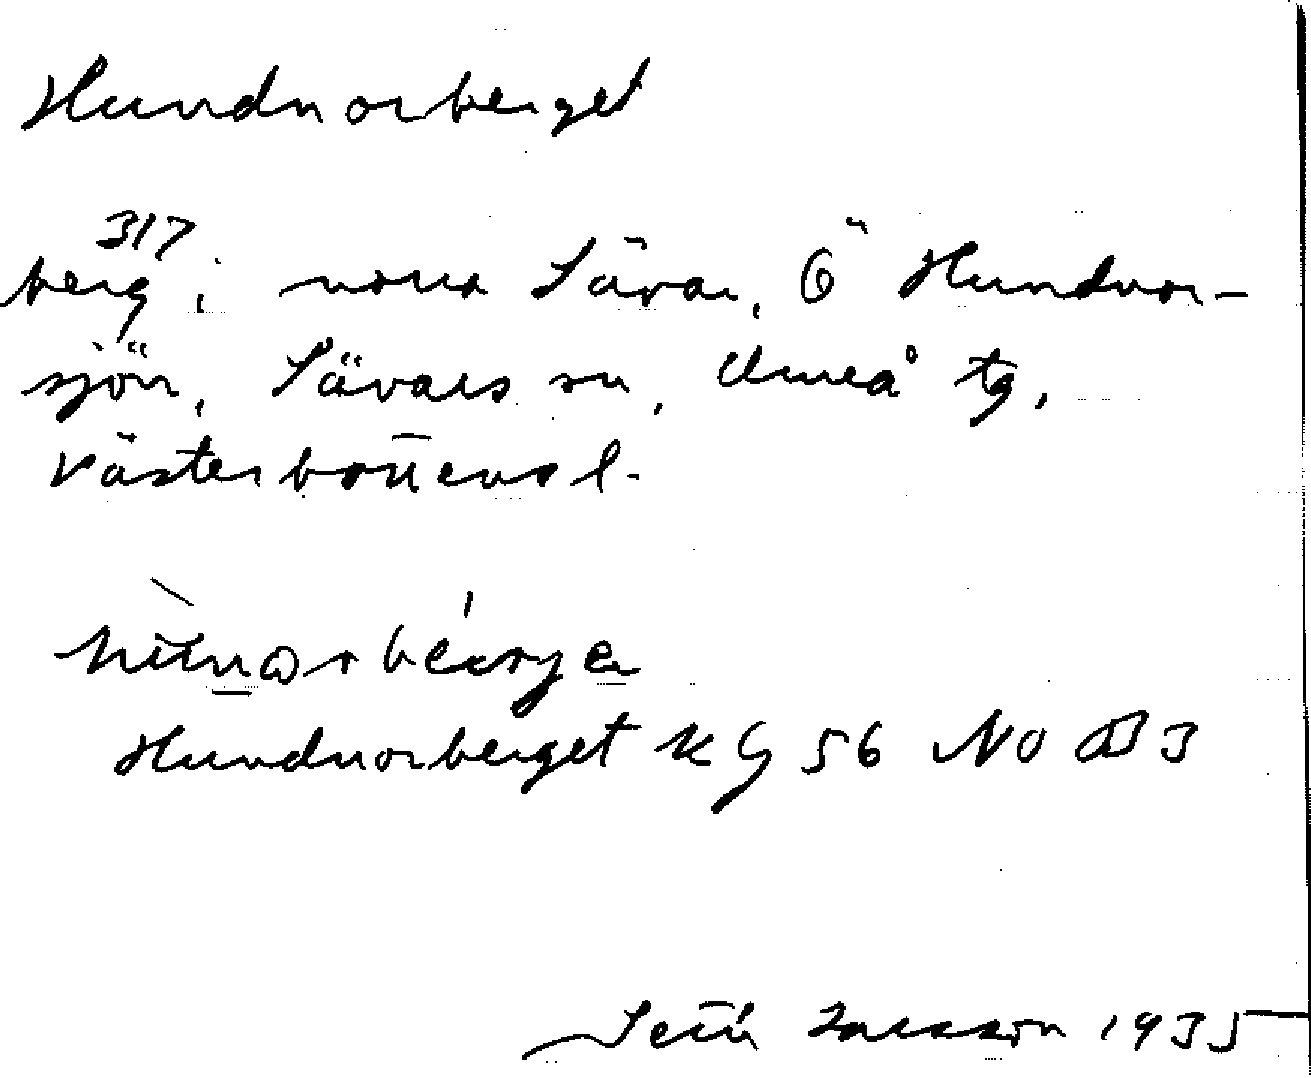 Hundnorberget
317
berg i norra Sävar, Ö Hundnor-
sjön, Sävars sn, Umeå tg,
Västerbottens l.
Hundnorberget KG 56 NO 3
Jansson 1935